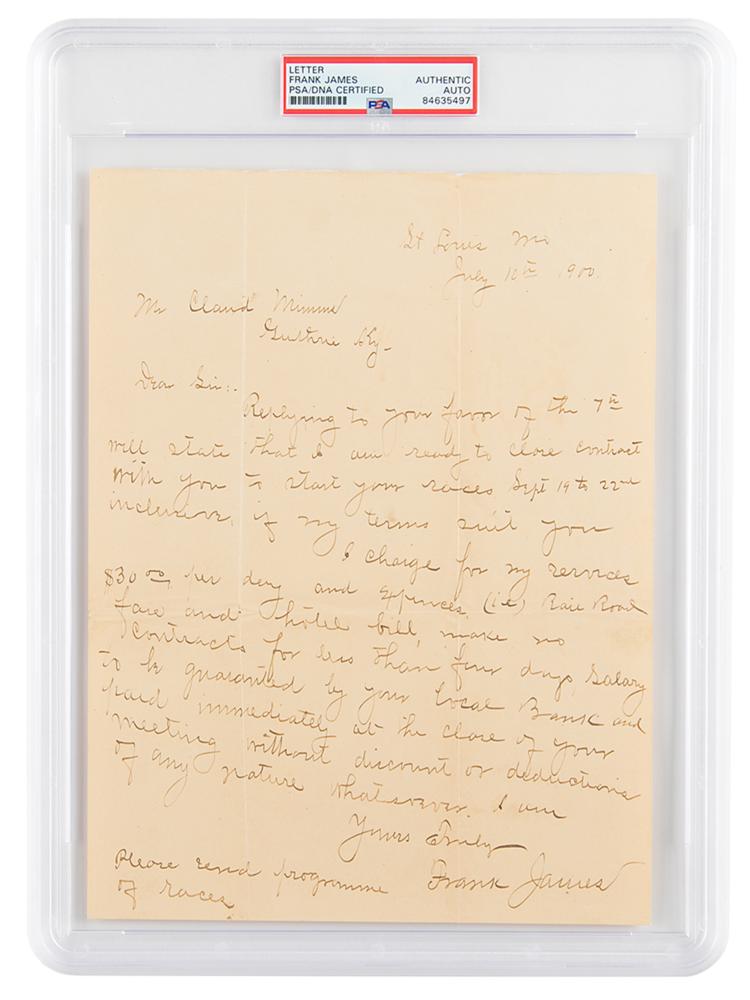 LETTER
FRANK JAMES
PSA/DNA CERTIFIED
AUTHENTIC
AUTO
84635497
PSA
St Louis Mo
July 10th 1900.
Mr Claud Mimms
Guthrie Ky-
Dear Sir:.
Replying to your favor of the 7th
will state that I am ready to close contract
with you to start your races Sept 19 to 22nd
inclusive, if my terms suit you
I charge for my services
$30 00, per day and expences, (i.e) Raie Road
fare and hotel bill, make no
contracts for less than four days, Salary
to be guaranted by your Local Bank and
paid immediately at the close of your
meeting without discount or deductions
of any nature whatsoever. I am
Yours Truly
Frank James
Please send programme
of races